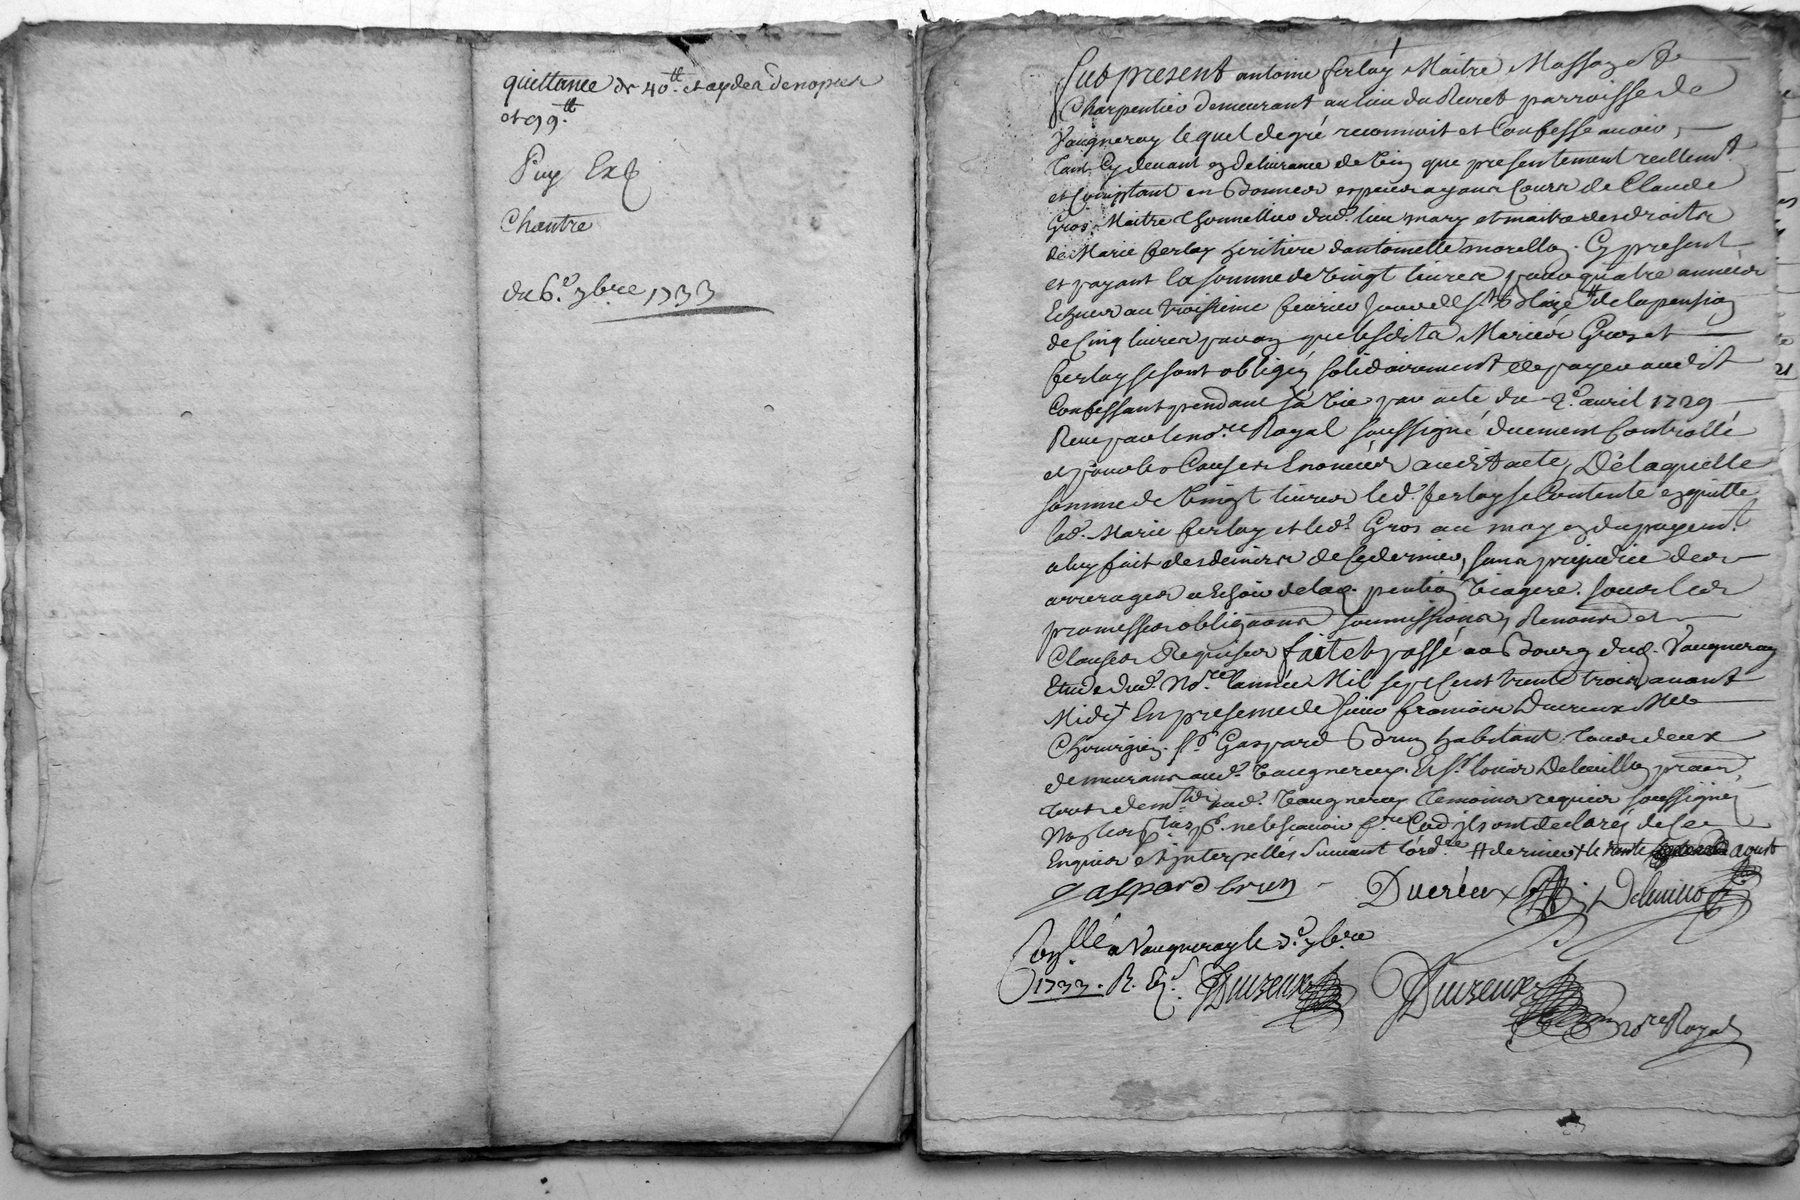 quittance de 40.tt et
et 99.tt
Puy
Chantre
du 6.e 7bre 1733
fut present antoine ferlay Maitre Masson et
Charpentier demeurant au lieu du parroisse de
Vaugneray lequel de gré reconnoit et Confesse avoir
tant Cy devant que presentement reellem.t
et Comptant en bonnes especes ayant Cours de Claude
Gros Maitre thonnellier dud. lieu mary et maitre des droits
de Marie ferlay heritiere d'antoinette morellon Cy present
et payant la somme de vingt livres pour quatre années
Echues au troisieme fevrier jour de st blaize tt de la pension
de Cinq livres par an que lesdits Mariés Gros et
ferlay se sont obligés solidairement de payer audit
Confessant pendant sa vie par acte du 2.e avril 1729
Receu par le no.re Royal soussigné duement Controllé
et pour les Causes Enoncées audit acte, De laquelle
somme de vingt livres led. ferlay se Contente en quitte
lad. Marie ferlay et led. Gros au moyen du payem.t
a luy fait des deniers de Ce dernier, sans prejudice des
arrerages a Echoir de lad. pention viagere. sous les
promesses obligaons soumissions, Renonsõn et
Clauses Requises fait et passé au Bourg dud. Vaugneray
Etude dud. No.re l'année Mil sept Cent trente trois avant
Midy + En presence de sieur francois Ducreux M.e
Chirurgien s.r Gaspard Brun habitant tous deux
demeurans aud. Vaugneray. Et s.r louis
aud. Vaugneray temoins requis soussignés
Non les ne le scavoir f.re Co.e ils ont declarés de Ce
Enquis et interpellés suivant l'ord.ce tt dernier + le trente aoust
gaspard brun Ducreux
Con.llé a Vaugneray le 3.e 7bre
1733. R.
no.re Royal